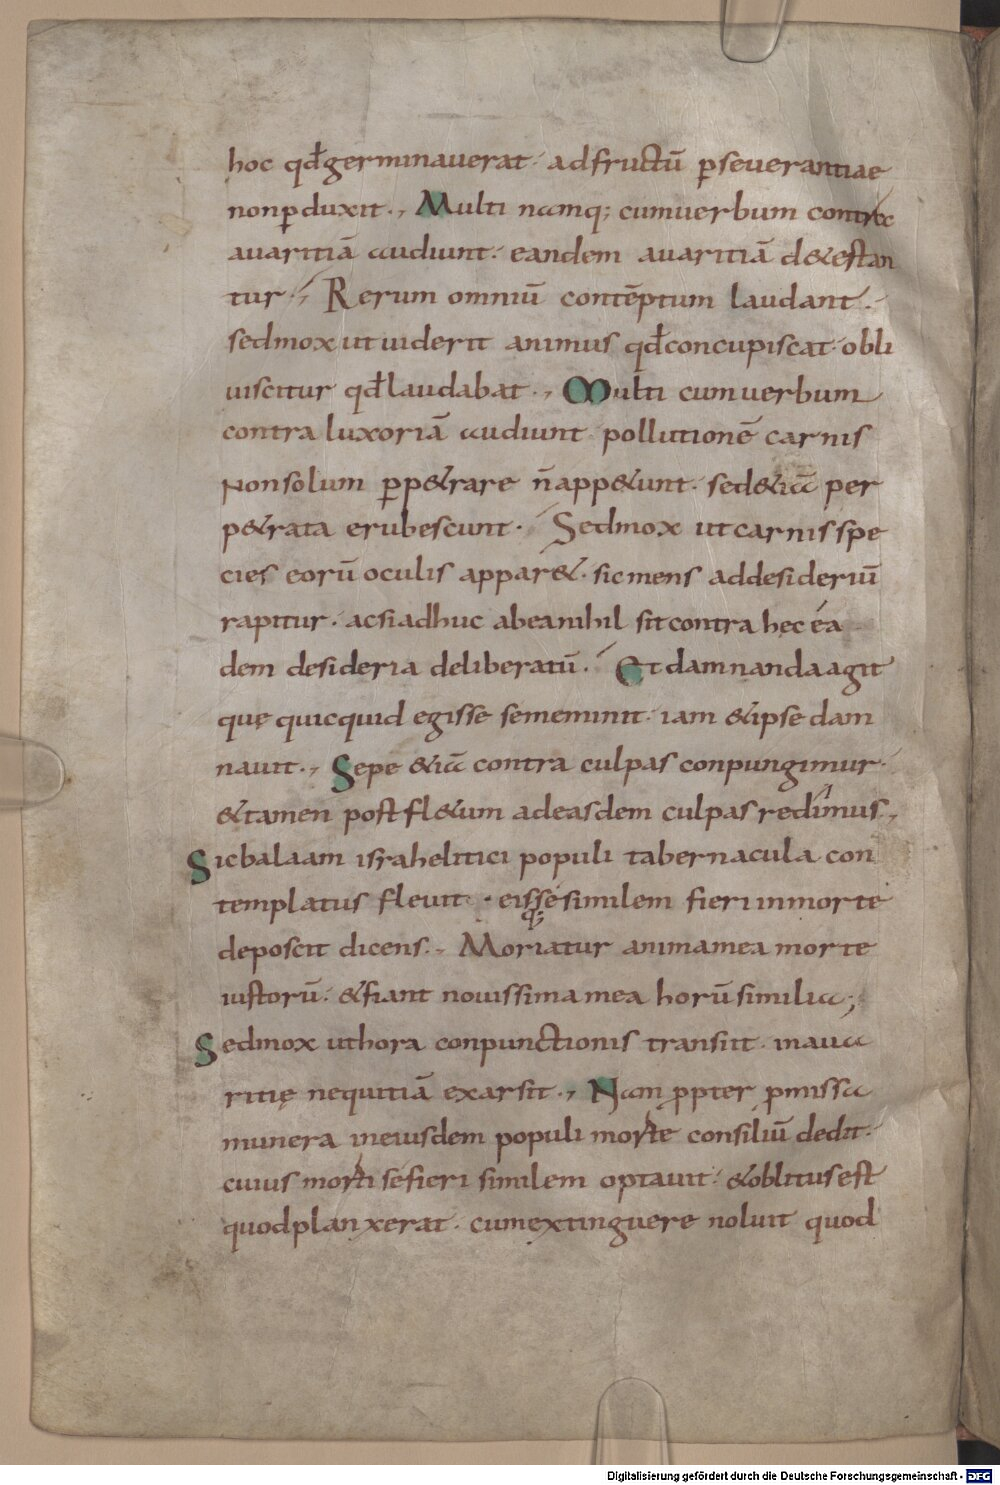 hoc qđgerminauerat · adfructū ꝑseuerantiae
nonꝑduxit ., Multi namq; cumuerbum contra
auaritiā audiunt · eandem auaritiā d&estan
tur ., Rerum omniū contēptum laudant ·
sedmox ut uiderit animus qđconcupiscat · obli
uiscitur qđlaudabat ., Multi cum uerbum
contra luxoriā audiunt · pollutionē carnis
Nonsolum ꝑp&rare n̄app&unt · sed&iā per
p&rata erubescunt · Sedmox ut carnis spe
cies eorū oculis appar& · sic mens addesideriū
rapitur · acsiadhuc abeanihil sit contra hęc éa
dem desideria deliberatū · Et damnanda agit
quę quicquid egisse sememinit · iam &ipse dam
nauit ., Sepe &iā contra culpas conpungimur ·
&tamen post fl&um adeasdem culpas redimus .,
Sicbalaam israhelitici populi tabernacula con
templatus fleuit · eisse similem fieri inmorte
q;
deposcit dicens ., Moriatur animamea morte
iustorū · &fiant nouissima mea horū similia ;
Sedmox uthora conpunctionis transiit · inaua
ritię nequitiā exarsit ., Nam ꝓpter ꝓmissa
munera ineiusdem populi morte consiliū dedit ·
cuius morti sefieri similem optauit · &oblitus est
quodplanxerat · cumextinguere noluit quod
Digitalisierung gefördert durch die Deutsche Forschungsgemeinschaft - DFG